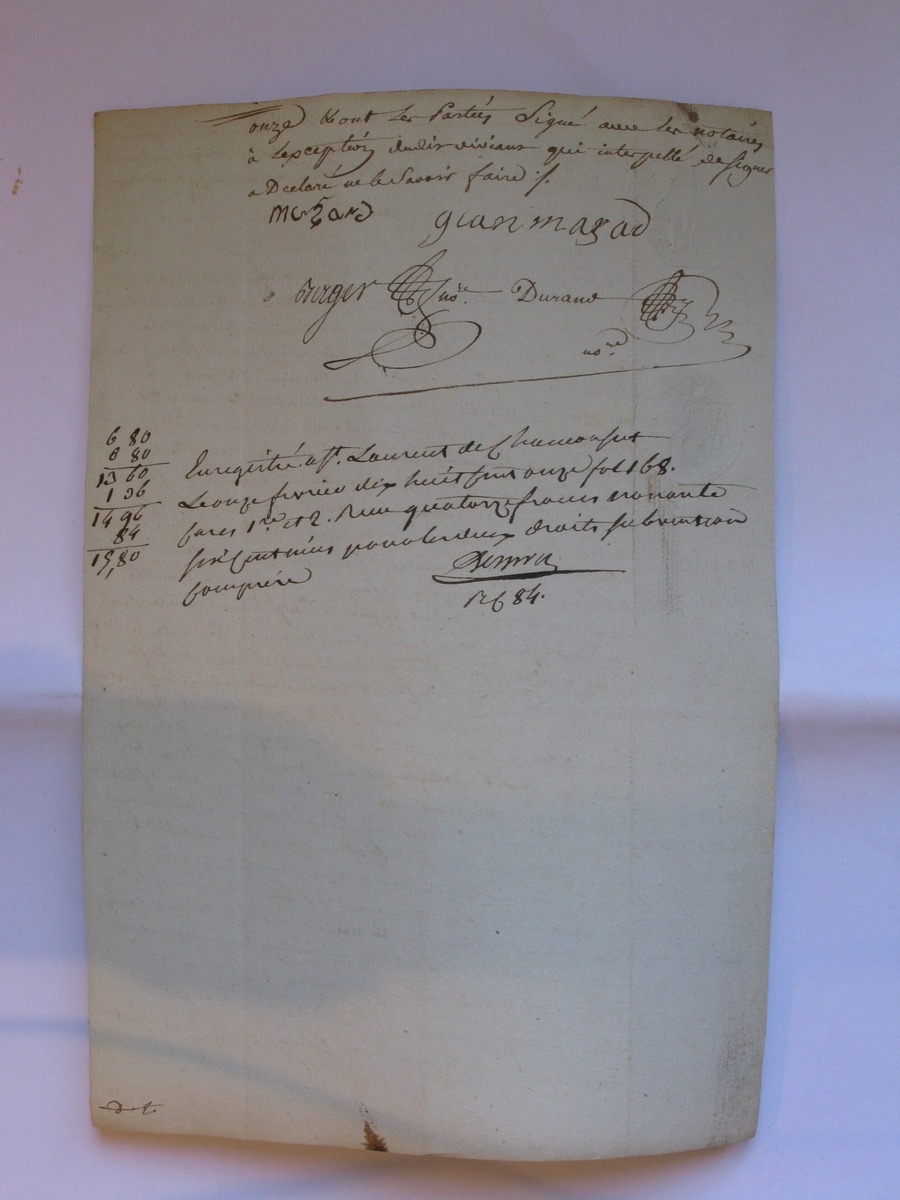 onze & ont Les Parties Signé avec les notaires
à L'exception dudit viviant qui interpellé de signer
a Declaré ne le Savoir faire ./.
Mazard gian mazad
Verger no.re Durand
no.re
6 80
6 80
13 60
1 36
14 96
84
15,80
Enregistré a St. Laurent de Chamousset
Le onze fevrier dix huit Cent onze fol 168.
Cases 1.re et 2. Reçu quatorze francs nonante
six Centimes pour les deux droits subvention
Comprise
R C 84.